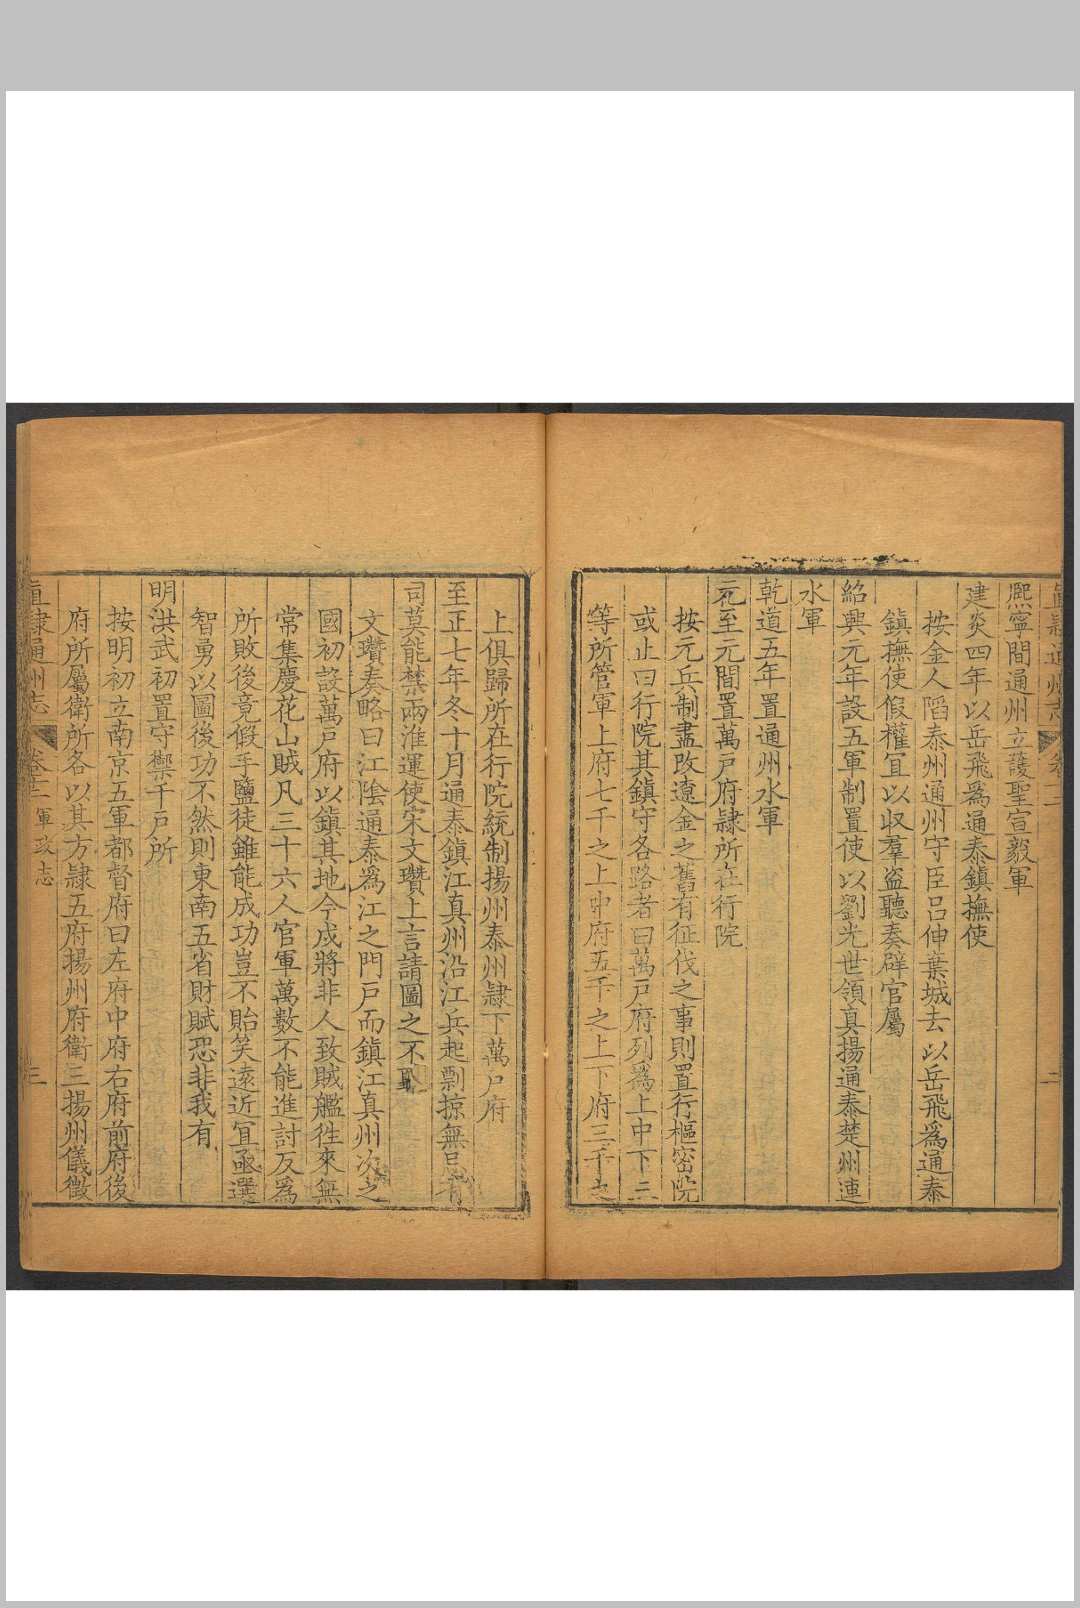 熈寧間通州立護聖宣毅軍
建炎四年以岳飛爲通泰鎮撫使
按金人陷泰州通州守臣呂伸棄城去以岳飛爲通泰
鎮撫使假權冝以収羣盗聽奏辟官屬
紹興元年設五軍制置使以劉光世領真揚通泰楚州連
水軍
乾道五年置通州水軍
元至元間置萬戸府隷所在行院
按元兵制盡改遼金之舊有征伐之事則置行樞密院
或止曰行院其鎮守各路者曰萬戸府列爲上中下三
等所管軍上府七千之上中府五千之上下府三千之
上俱歸所在行院統制揚州泰州隷下萬戸府
至正七年冬十月通泰鎮江真州沿江兵起剽掠無忌有
司莫能禁兩淮運使宋文瓚上言請圖之不
文瓚奏略曰江陰通泰爲江之門戸而鎮江真州次之
國初設萬戸府以鎮其地今戍將非人致賊艦徃來無
常集慶花山賊凡三十六人官軍萬數不能進討反爲
所敗後竟假手鹽徒雖能成功豈不貽笑遠近冝亟選
智勇以圖後功不然則東南五省財賦恐非我有
明洪武初置守禦千戸所
按明初立南京五軍都督府曰左府中府右府前府後
府所屬衛所各以其方隷五府揚州府衛三揚州儀徵
直隷通州志 卷十二 軍政志 三